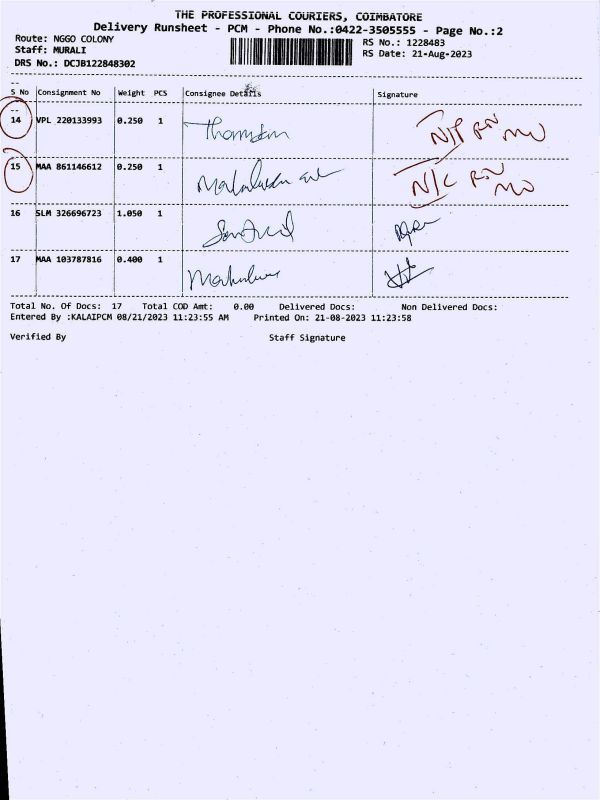 THE PROFESSIONAL COURIERS, COIMBATORE
Delivery Runsheet - PCM - Phone No.:0422-3505555 - Page No.:2
Route: NGGO COLONY RS No.: 1228483
Staff: MURALI RS Date: 21-Aug-2023
DRS No.: DCJB122848302
S No Consignment No Weight PCS Consignee Details Signature
14 VPL 220133993 0.250 1
15 MAA 861146612 0.250 1
16 SLM 326696723 1.050 1
17 MAA 103787816 0.400 1
Total No. Of Docs: 17 Total COD Amt: 0.00 Delivered Docs: Non Delivered Docs:
Entered By :KALAIPCM 08/21/2023 11:23:55 AM Printed On: 21-08-2023 11:23:58
Verified By Staff Signature